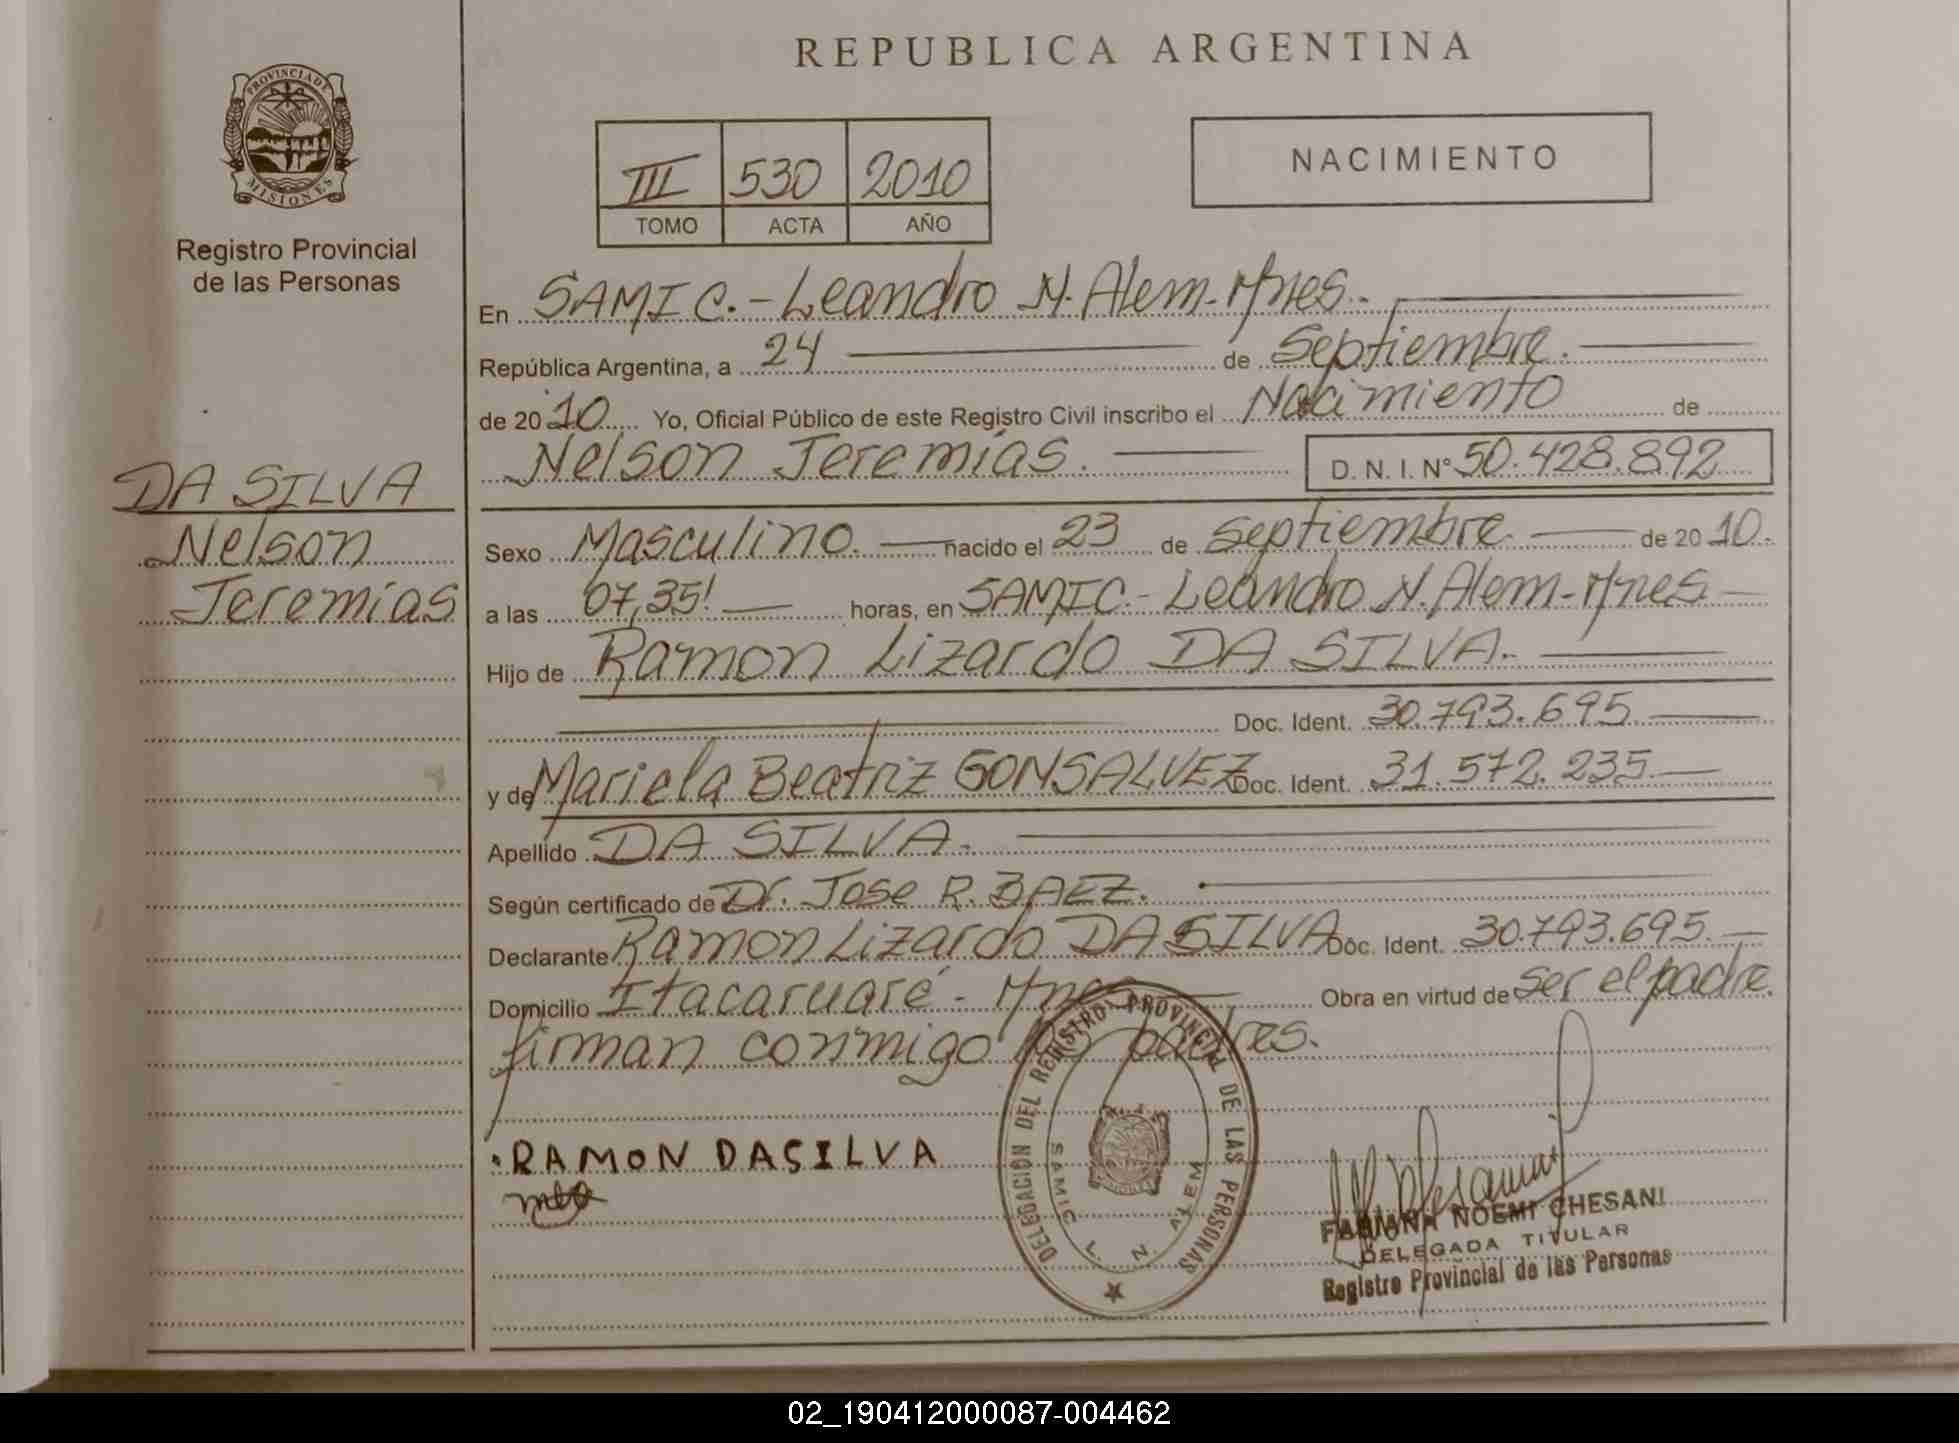 REPUBLICA ARGENTINA
PROVINCIA DE MISIONES
Registro Provincial
de las Personas
III 530 2010
TOMO ACTA AÑO
NACIMIENTO
En SAMIC.- Leandro N. Alem - Mnes.
República Argentina, a 24 de Septiembre.
de 2010 Yo, Oficial Público de este Registro Civil inscribo el Nacimiento de
Nelson Jeremías. D. N. I. Nº 50.428.892
DA SILVA
Nelson
Jeremías
Sexo Masculino. nacido el 23 de Septiembre. de 2010.
a las 07,35! horas, en SAMIC.- Leandro N. Alem - Mnes
Hijo de Ramon Lizardo DA SILVA.
Doc. Ident. 30.793.695
y de Mariela Beatriz GONSALVEZ Doc. Ident. 31.572.235
Apellido DA SILVA.
Según certificado de Dr. Jose R. BAEZ.
Declarante Ramon Lizardo DA SILVA Doc. Ident. 30.793.695
Domicilio Itacaruaré - Mnes Obra en virtud de ser el padre
firman conmigo los padres.
RAMON DASILVA
DELEGACIÓN DEL REGISTRO PROVINCIAL DE LAS PERSONAS
SAMIC L. N. ALEM
FABIANA NOEMI CHESANI
DELEGADA TITULAR
Registro Provincial de las Personas
02_190412000087-004462